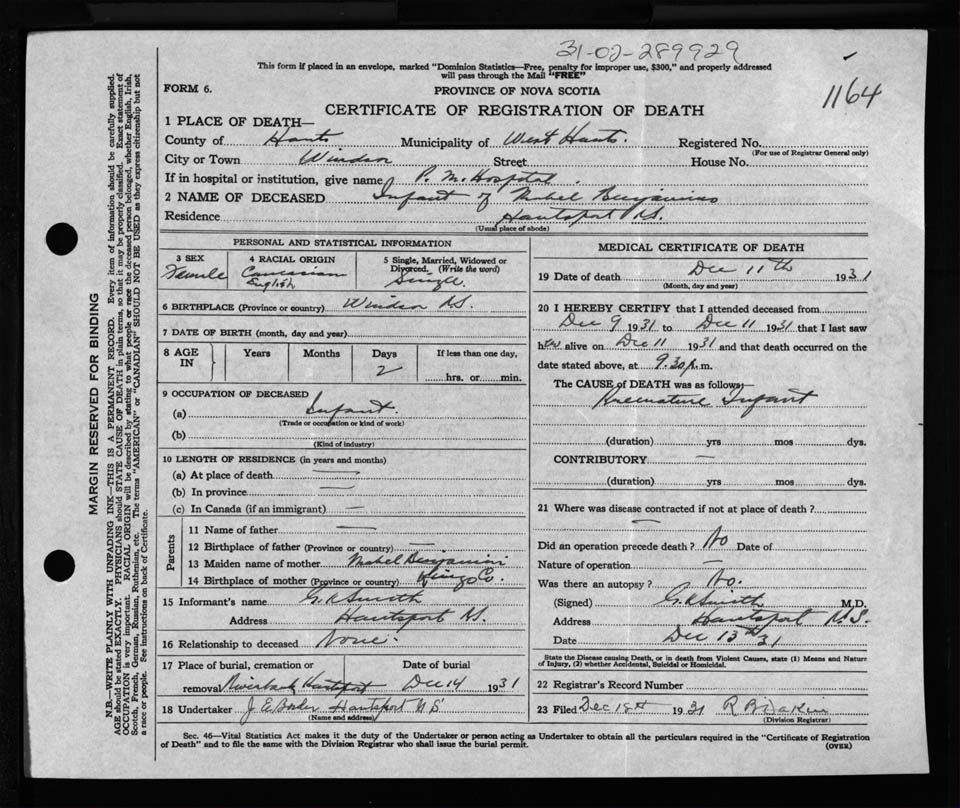 31-02-289929
This form if placed in an envelope, marked "Dominion Statistics—Free, penalty for improper use, $300," and properly addressed
will pass through the Mail "FREE"
1164
FORM 6.
PROVINCE OF NOVA SCOTIA
CERTIFICATE OF REGISTRATION OF DEATH
1 PLACE OF DEATH—
County of Hants Municipality of West Hants. Registered No.
(For use of Registrar General only)
City or Town Windsor Street House No.
If in hospital or institution, give name P. M. Hospital.
2 NAME OF DECEASED Infant of Mabel Benjamin
Residence Hantsport N.S.
(Usual place of abode)
PERSONAL AND STATISTICAL INFORMATION
3 SEX
Female
4 RACIAL ORIGIN
Caucasian
English
5 Single, Married, Widowed or
Divorced. (Write the word)
Single.
6 BIRTHPLACE (Province or country) Windsor N.S.
7 DATE OF BIRTH (month, day and year)
8 AGE IN Years Months Days If less than one day,
2 hrs. or min.
9 OCCUPATION OF DECEASED
(a) Infant.
(Trade or occupation or kind of work)
(b)
(Kind of industry)
10 LENGTH OF RESIDENCE (in years and months)
(a) At place of death —
(b) In province —
(c) In Canada (if an immigrant) —
Parents
11 Name of father —
12 Birthplace of father (Province or country) —
13 Maiden name of mother Mabel Benjamin
14 Birthplace of mother (Province or country) Kings Co.
15 Informant's name G. R. Smith
Address Hantsport N.S.
16 Relationship to deceased None.
17 Place of burial, cremation or Date of burial
removal Riverbank Hantsport Dec 14 1931
18 Undertaker J. E. Hantsport N S
(Name and address)
MEDICAL CERTIFICATE OF DEATH
19 Date of death Dec 11th 1931
(Month, day and year)
20 I HEREBY CERTIFY that I attended deceased from
Dec 9 1931 to Dec 11 1931 that I last saw
her alive on Dec 11 1931 and that death occurred on the
date stated above, at 9.30 p.m.
The CAUSE of DEATH was as follows:
Premature Infant
(duration) yrs mos dys.
CONTRIBUTORY —
(duration) yrs. mos. dys.
21 Where was disease contracted if not at place of death?
—
Did an operation precede death? No Date of
Nature of operation —
Was there an autopsy? No.
(Signed) G. R. Smith M.D.
Address Hantsport N.S.
Date Dec 13th 31
State the Disease causing Death, or in death from Violent Causes, state (1) Means and Nature
of Injury, (2) whether Accidental, Suicidal or Homicidal.
22 Registrar's Record Number
23 Filed Dec 18th 1931 R B
(Division Registrar)
Sec. 46—Vital Statistics Act makes it the duty of the Undertaker or person acting as Undertaker to obtain all the particulars required in the "Certificate of Registration
of Death" and to file the same with the Division Registrar who shall issue the burial permit.
(OVER)
MARGIN RESERVED FOR BINDING
N.B.—WRITE PLAINLY WITH UNFADING INK—THIS IS A PERMANENT RECORD. Every item of information should be carefully supplied.
AGE should be stated EXACTLY. PHYSICIANS should STATE CAUSE OF DEATH in plain terms, so that it may be properly classified. Exact statement of
OCCUPATION is very important. RACIAL ORIGIN will be described by stating to what people or race the deceased person belonged, whether English, Irish,
Scotch, French, German, Russian, Ruthenian, etc. The terms "AMERICAN" or "CANADIAN" SHOULD NOT BE USED as they express citizenship but not
a race or people. See instructions on back of Certificate.